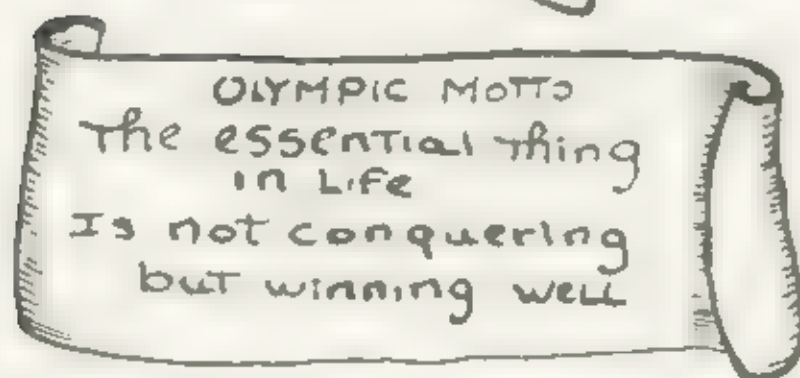 OLYMPIC MOTTO
The essential thing
in Life
Is not conquering
but winning well